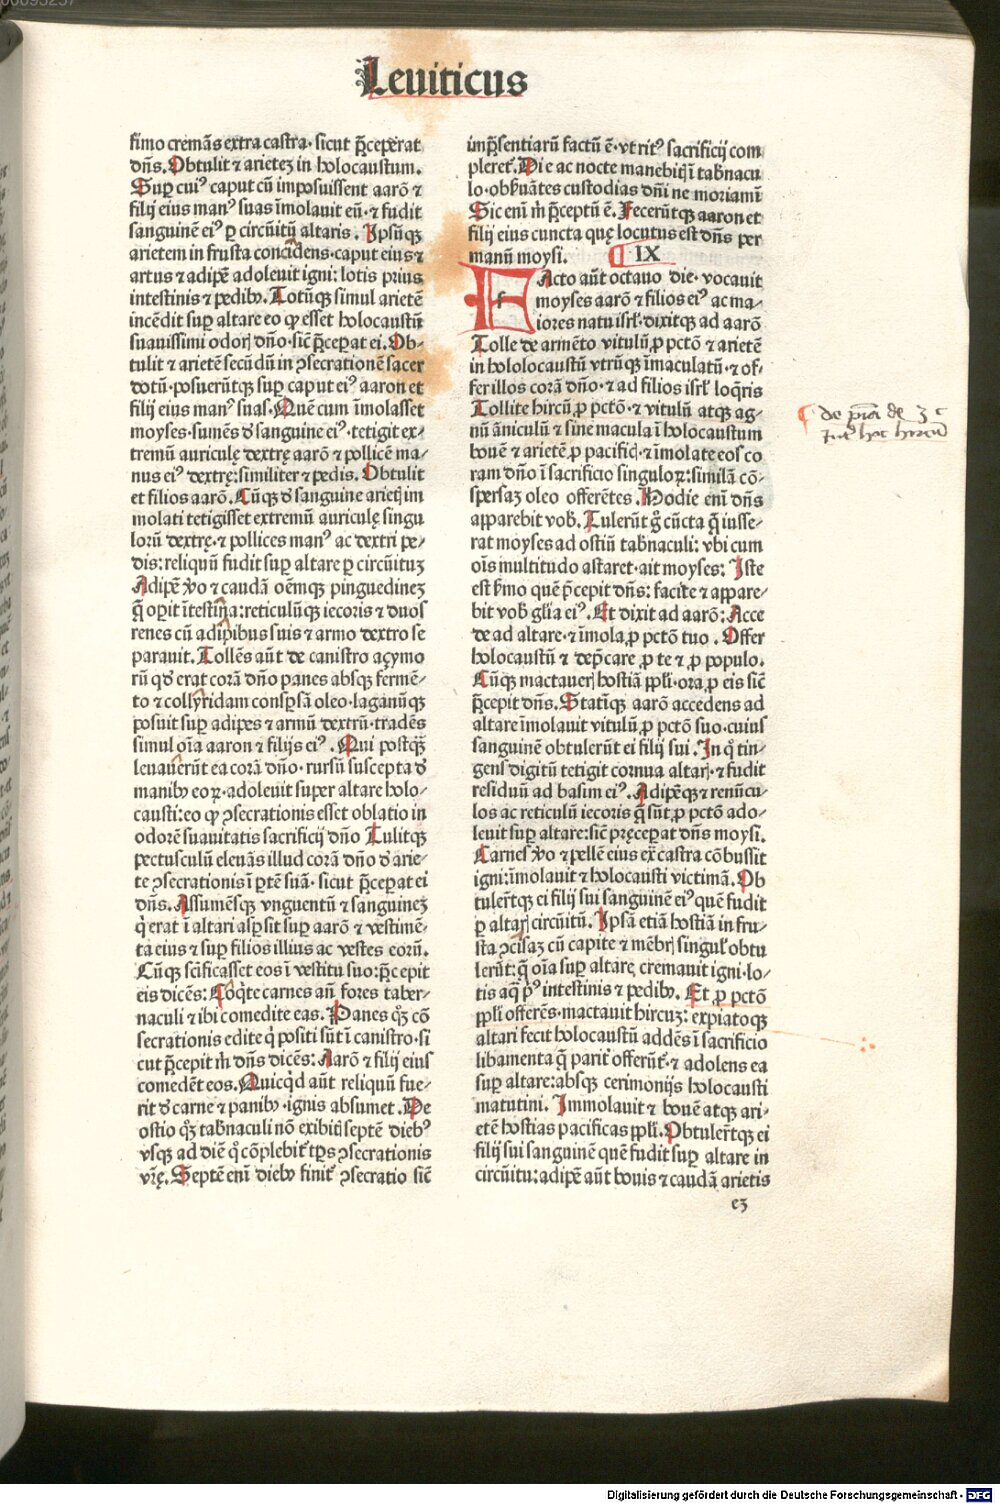 Leuiticus
fimo cremās extra castra· sicut p̄ceperat
dn̄s. Obtulit ⁊ arietez in holocaustum.
Suꝑ cuiꝰ caput cū imposuissent aarō ⁊
filij eius manꝰ suas īmolauit eū·⁊ fudit
sanguinē eiꝰ ꝑ circūitū altaris. Ipsūqꝫ
arietem in frusta concidens·caput eius ⁊
artus ⁊ adipē adoleuit igni: lotis prius
intestinis ⁊ pedibꝰ. Totūqꝫ simul arietē
incēdit suꝑ altare eo ꝙ esset holocaustū
suauissimi odorꝭ dn̄o·sic̄ p̄ceꝑat ei. Ob-
tulit ⁊ arietē secūdū in ꝯsecrationē sacer
dotū·posuerūtqꝫ suꝑ caput eiꝰ aaron et
filij eius manꝰ suas. Quē cum īmolasset
moyses·sumēs đ sanguine eiꝰ·tetigit ex-
tremū auriculę dextrę aarō ⁊ pollicē ma-
nus eiꝰ dextrę: similiter ⁊ pedis. Obtulit
et filios aarō. Cūqꝫ đ sanguine arietꝭ im
molati tetigisset extremū auriculę singu
lorū dextrę·⁊ pollices manꝰ ac dextri pe-
dis: reliquū fudit suꝑ altare ꝑ circūituꝫ
Adipē ꝟo ⁊ caudā oēmqꝫ pinguedineꝫ
q̄ oꝑit ītestina: reticulūqꝫ iecoris ⁊ duos
renes cū adipibus suis ⁊ armo dextro se
parauit. Tollēs aūt de canistro açymo
rū qđ erat corā dn̄o panes absqꝫ fermē-
to ⁊ collyridam consꝑsā oleo·laganūqꝫ
posuit suꝑ adipes ⁊ armū dextrū·tradēs
simul oīa aaron ⁊ filijs eiꝰ. Qui postꝗ̄
leuauerūt ea corā dn̄o·rursū suscepta đ
manibꝰ eoꝝ·adoleuit super altare holo-
causti: eo ꝙ ꝯsecrationis esset oblatio in
odorē suauitatis sacrificij dn̄o Tulitqꝫ
pectusculū eleuās illud corā dn̄o đ arie-
te ꝯsecrationis ī ꝑtē suā· sicut p̄ceꝑat ei
dn̄s. Assumēsqꝫ vnguentū ⁊ sanguineꝫ
q̇ erat ī altari asꝑsit suꝑ aarō ⁊ vestimē-
ta eius ⁊ suꝑ filios illius ac vestes eorū.
Cūqꝫ scīficasset eos ī vestitu suo: p̄cepit
eis dicēs: Coq̇te carnes an̄ fores taber-
naculi ⁊ ibi comedite eas. Panes qꝫ cō
secrationis edite q̇ positi sūt ī canistro·si
cut p̄cepit m̄ dn̄s dicēs: Aarō ⁊ filij eius
comedēt eos. Quicq̇d aūt reliquū fue-
rit đ carne ⁊ panibꝰ·ignis absumet. De
ostio qꝫ tab̄naculi nō exibitꝭ septē diebꝰ
vsqꝫ ad diē q̊ cōplebit᷑ tp̄s ꝯsecrationis
vr̄ę. Septē enī diebꝰ finit᷑ ꝯsecratio sic̄
imp̄sentiarū factū ē·vt ritꝰ sacrificij com
pleret᷑. Die ac nocte manebitꝭ ī tab̄nacu
lo·obẜuātes custodias dn̄i ne moriamī
Sic enī m̄ p̄ceptū ē. Fecerūtqꝫ aaron et
filij eius cuncta quę locutus est dn̄s per
manū moysi. IX
FActo aūt octauo die· vocauit
moyses aarō ⁊ filios eiꝰ ac ma-
iores natu isrl̄·dixitqꝫ ad aarō
Tolle de armēto vitulū ꝓ pctō ⁊ arietē
in hololocaustū vtrūqꝫ īmaculatū·⁊ of-
fer illos corā dn̄o·⁊ ad filios isrl̄ loq̄ris
Tollite hircū ꝓ pctō·⁊ vitulū atqꝫ ag-
nū āniculū ⁊ sine macula ī holocaustum
bouē ⁊ arietē ꝓ pacificꝭ·⁊ imolate eos co
ram dn̄o ī sacrificio singuloꝝ: similā cō-
spersaꝫ oleo offerētes. Hodie enī dn̄s
apparebit vob̄. Tulerūt g̊ cūcta q̄ iusse-
rat moyses ad ostiū tab̄naculi: vbi cum
oīs multitudo astaret·ait moyses: Iste
est ẜmo quē p̄cepit dn̄s: facite ⁊ appare-
bit vob̄ gl̄ia eiꝰ. Et dixit ad aarō: Acce
de ad altare·⁊ īmola ꝓ pctō tuo. Offer
holocaustū ⁊ dep̄care ꝓ te ⁊ ꝓ populo.
Cūqꝫ mactauerꝭ hostiā ppl̄i·ora ꝓ eis sic̄
p̄cepit dn̄s. Statīqꝫ aarō accedens ad
altare īmolauit vitulū ꝓ pctō suo·cuius
sanguinē obtulerūt ei filij sui. In q̊ tin-
gens digitū tetigit cornua altarꝭ·⁊ fudit
residuū ad basim eiꝰ. Adipēqꝫ ⁊ renūcu-
los ac reticulū iecoris q̄ sūt ꝓ pctō ado-
leuit suꝑ altare: sic̄ pręceꝑat dn̄s moysi.
Carnes ꝟo ⁊ pellē eius ex̄ castra cōbussit
igni: īmolauit ⁊ holocausti victimā. Ob
tulerūtqꝫ ei filij sui sanguinē eiꝰ quē fudit
ꝑ altarꝭ circūitū. Ipsā etiā hostiā in fru-
sta ꝯcisaꝫ cū capite ⁊ mēbrꝭ singul᷑ obtu
lerūt: q̄ oīa suꝑ altarę cremauit igni·lo-
tis aq̄ pꝰ intestinis ⁊ pedibꝰ. Et ꝓ pctō
ppl̄i offerēs·mactauit hircuꝫ: expiatoqꝫ
altari fecit holocaustū addēs ī sacrificio
libamenta q̄ parit᷑ offerūt᷑·⁊ adolens ea
suꝑ altare: absqꝫ cerimonijs holocausti
matutini. Immolauit ⁊ bouē atqꝫ ari-
etē hostias pacificas ppl̄i. Obtulerūtqꝫ ei
filij sui sanguinē quē fudit suꝑ altare in
circūitu: adipē aūt bouis ⁊ caudā arietis
eꝫ
Digitalisierung gefördert durch die Deutsche Forschungsgemeinschaft - DFG